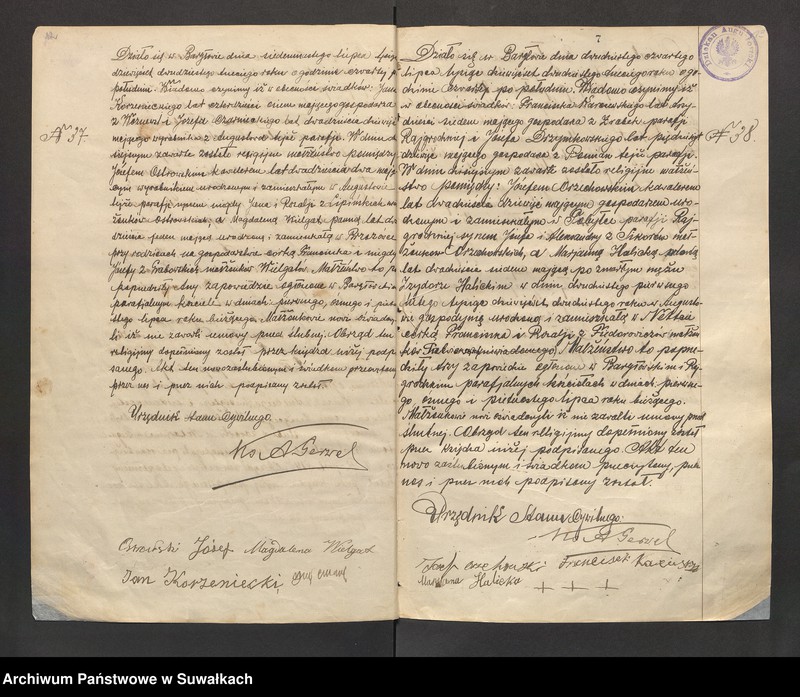 № 37.
Działo się w Bargłowie dnia siedemnastego lipca tysiąc
dziewięćset dwudziestego trzeciego roku o godzinie czwartej po
południu. Wiadomo czynimy iż w obecności świadków: Jana
Korzenieckiego lat czterdzieści mającego gospodarza
z i Józefa lat dwadzieścia dwa
mającego wyrobnika z Augustowa tejże parafji. W dniu dzi-
siejszym zawarte zostało religijne małżeństwo pomiędzy
Józefem Ostrowskim kawalerem lat dwadzieścia dwa mają-
cym wyrobnikiem urodzonym i zamieszkałym w Augustowie
tejże parafji synem niegdy Jana i Rozalji z Lipińskich mał-
żonków Ostrowskich, a Magdaleną Wielgat panną lat
mającą urodzoną i zamieszkałą w
przy rodzicach na gospodarstwie córką Franciszka i niegdy
Józefy z małżonków Wielgatów. Małżeństwo to po-
przedziły zapowiedzie ogłoszone w Bargłowskim
parafjalnym kościele w dniach: pierwszego, ósmego i pięt-
nastego lipca roku bieżącego. Małżonkowie nowi oświadczy-
li iż nie zawarli umowy przed ślubnej. Obrząd ten
religijny dopełniony został przez księdza niżej podpi-
sanego. Akt ten nowozaślubionym i świadkom przeczytany
przez nas i przez nich podpisany został.
Urzędnik Stanu Cywilnego.
Ks A Gerwel
Ostrowski Józef Magdalena Wielgat
Jan Korzeniecki
7
Dziekan Augustowski
№ 38.
Działo się w Bargłowie dnia dwudziestego czwartego
lipca tysiąc dziewięćset dwudziestego trzeciego roku o go-
dzinie czwartej po południu. Wiadomo czynimy iż
w obecności świadków: Franciszka lat trzy-
dzieści siedem mającego gospodarza z parafji
Rajgrodzkiej i Józefa Drzymkowskiego lat pięćdziesiąt
mającego gospodarza z Pomian tejże parafji.
W dniu dzisiejszym zawarte zostało religijne małżeń-
stwo pomiędzy: Józefem Orzechowskim kawalerem
lat dwadzieścia dziewięć mającym gospodarzem uro-
dzonym i zamieszkałym w parafji Raj-
grodzkiej synem Józefa i Aleksandry z Sikorów mał-
żonków Orzechowskich, a Marjanną Halicką
lat dwadzieścia siedem mającą po zmarłym mężu
Izydorze Halickim w dniu dwudziestego pierwszego
lutego tysiąc dziewięćset dwudziestego roku w Augusto-
wie gospodynią urodzoną i zamieszkałą w
córką Franciszka i Rozalji z Fiedorowiczów małżon-
ków. Małżeństwo to poprze-
dziły trzy zapowiedzie ogłoszone w Bargłowskim i Raj-
grodzkim parafjalnych kościołach w dniach: pierwsze-
go, ósmego i piętnastego lipca roku bieżącego.
Małżonkowie nowi oświadczyli iż nie zawarli umowy przed
ślubnej. Obrząd ten religijny dopełniony został
przez księdza niżej podpisanego. Akt ten
nowo zaślubionym i świadkom przeczytany, przez
nas i przez nich podpisany został.
Urzędnik Stanu Cywilnego:
Ks A Gerwel
Józef Orzechowski Franciszek
Marjanna Halicka + + +
Archiwum Państwowe w Suwałkach